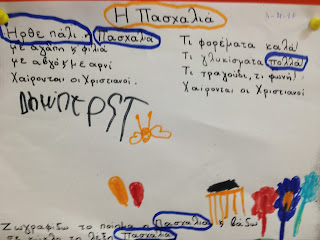 Η Πασχαλιά
Ήρθε πάλι η Πασχαλιά
με αγάπη ς φιλιά
με αυγό ς με αρνί
Χαίρονται οι Χριστιανοί.
Τι φορέματα καλά
Τι γλυκίσματα πολλά
Τι τραγούδι, τι φωνή!
Χαίρονται οι Χριστιανοί
Ζωγραφίζω το ποίημα η Πασχαλιά ς βάζω
σε κύκλο τη λέξη Πασχαλιά